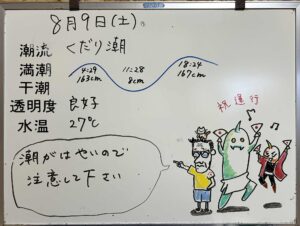 8月9日(土)
潮流 くだり潮
満潮 4:29 163cm 18:24 167cm
干潮 11:28 8cm
透明度 良好
水温 27℃
潮がはやいので
注意して下さい
祝運行